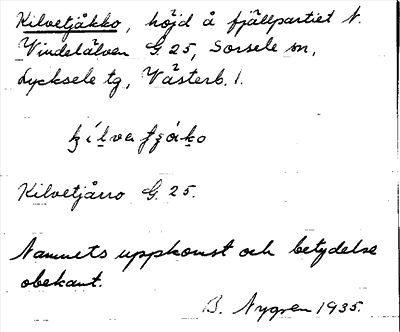 Kilvetjåkko, höjd å fjällpartiet N.
Vindelälven G. 25, Sorsele sn,
Lycksele tg, Västerb. l.
Kilvetjårro G. 25.
Namnets uppkomst och betydelse
obekant.
B. Nygren 1935.